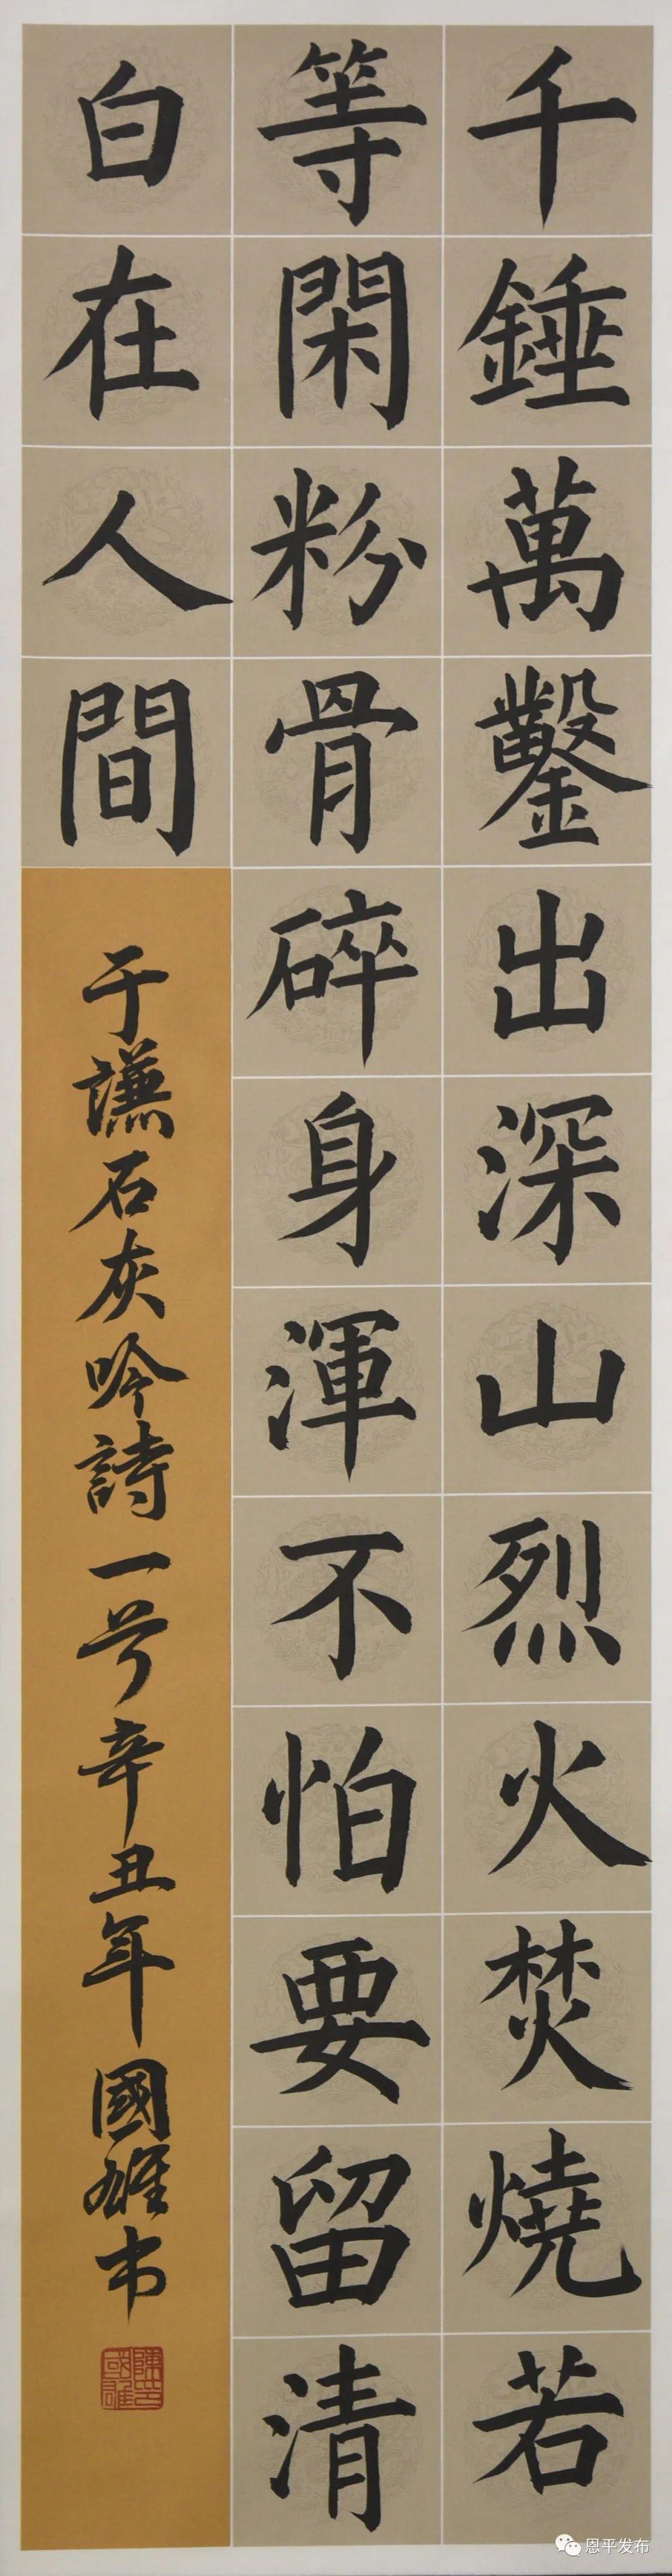 千錘萬鑿出深山烈火焚燒若
等閑粉骨碎身渾不怕要留清
白在人間
于謙石灰吟詩一首辛丑年國雄书
陳國雄印
恩平发布